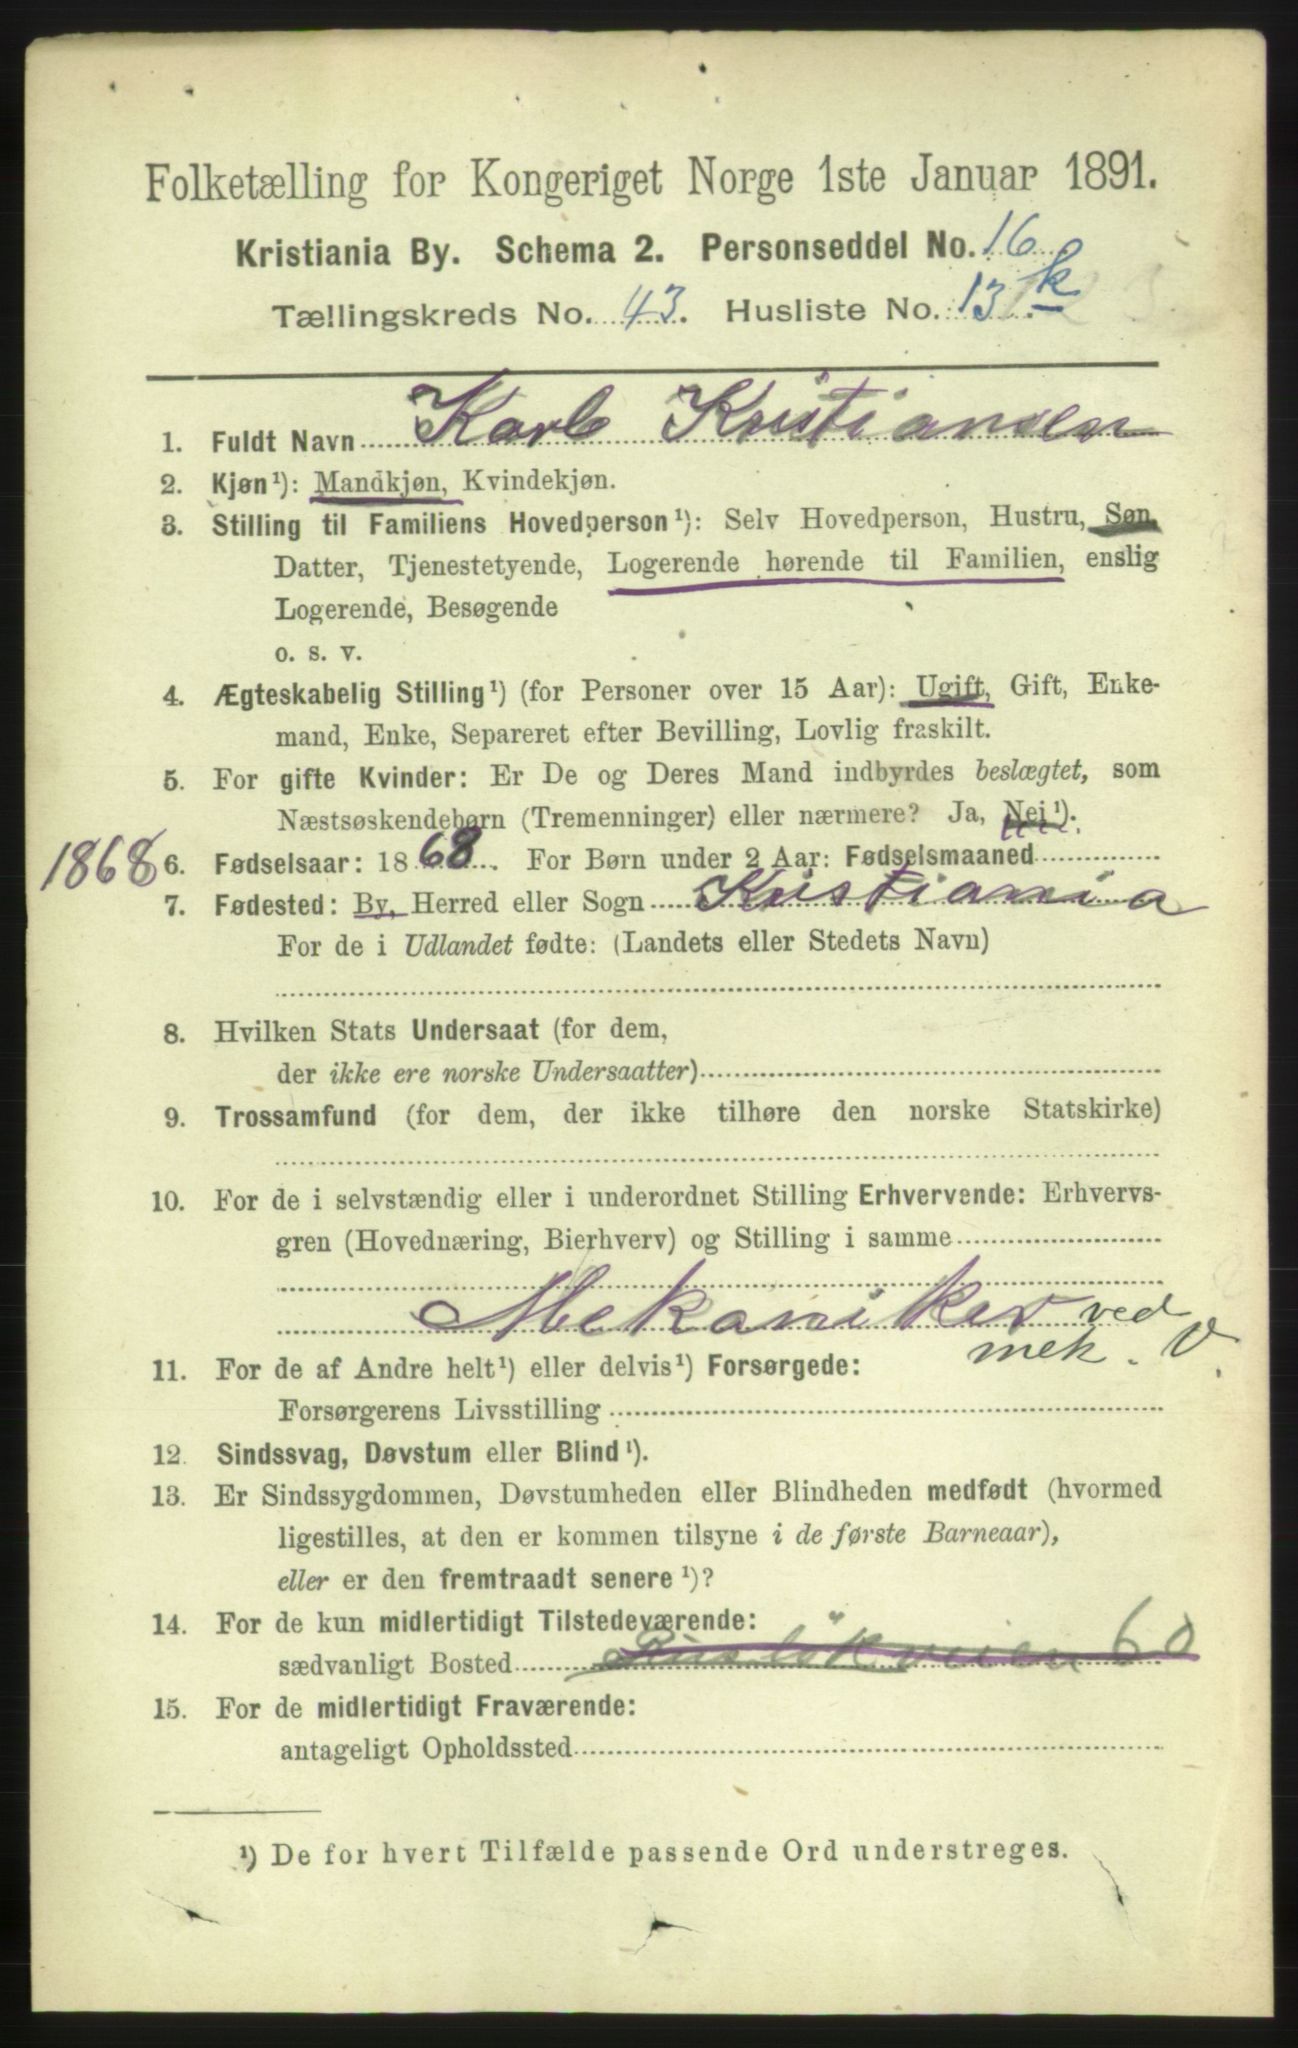 Folketælling for Kongeriget Norge 1ste Januar 1891.
Kristiania By. Schema 2. Personseddel No. 16
Tællingskreds No. 43. Husliste No. 13 k
1. Fuldt Navn Karl Kristiansen
2. Kjøn¹): Mandkjøn, Kvindekjøn.
3. Stilling til Familiens Hovedperson¹): Selv Hovedperson, Hustru, Søn,
Datter, Tjenestetyende, Logerende hørende til Familien, enslig
Logerende, Besøgende
o. s. v.
4. Ægteskabelig Stilling¹) (for Personer over 15 Aar): Ugift, Gift, Enke-
mand, Enke, Separeret efter Bevilling, Lovlig fraskilt.
5. For gifte Kvinder: Er De og Deres Mand indbyrdes beslægtet, som
Næstsøskendebørn (Tremenninger) eller nærmere? Ja, Nei¹).
1868 6. Fødselsaar: 1868. For Børn under 2 Aar: Fødselsmaaned
7. Fødested: By, Herred eller Sogn Kristiania
For de i Udlandet fødte: (Landets eller Stedets Navn)
8. Hvilken Stats Undersaat (for dem,
der ikke ere norske Undersaatter)
9. Trossamfund (for dem, der ikke tilhøre den norske Statskirke)
10. For de i selvstændig eller i underordnet Stilling Erhvervende: Erhvervs-
gren (Hovednæring, Bierhverv) og Stilling i samme
Mekaniker ved
mek. V.
11. For de af Andre helt¹) eller delvis¹) Forsørgede:
Forsørgerens Livsstilling
12. Sindssvag, Døvstum eller Blind¹).
13. Er Sindssygdommen, Døvstumheden eller Blindheden medfødt (hvormed
ligestilles, at den er kommen tilsyne i de første Barneaar),
eller er den fremtraadt senere¹)?
14. For de kun midlertidigt Tilstedeværende:
sædvanligt Bosted 60
15. For de midlertidigt Fraværende:
antageligt Opholdssted
¹) De for hvert Tilfælde passende Ord understreges.